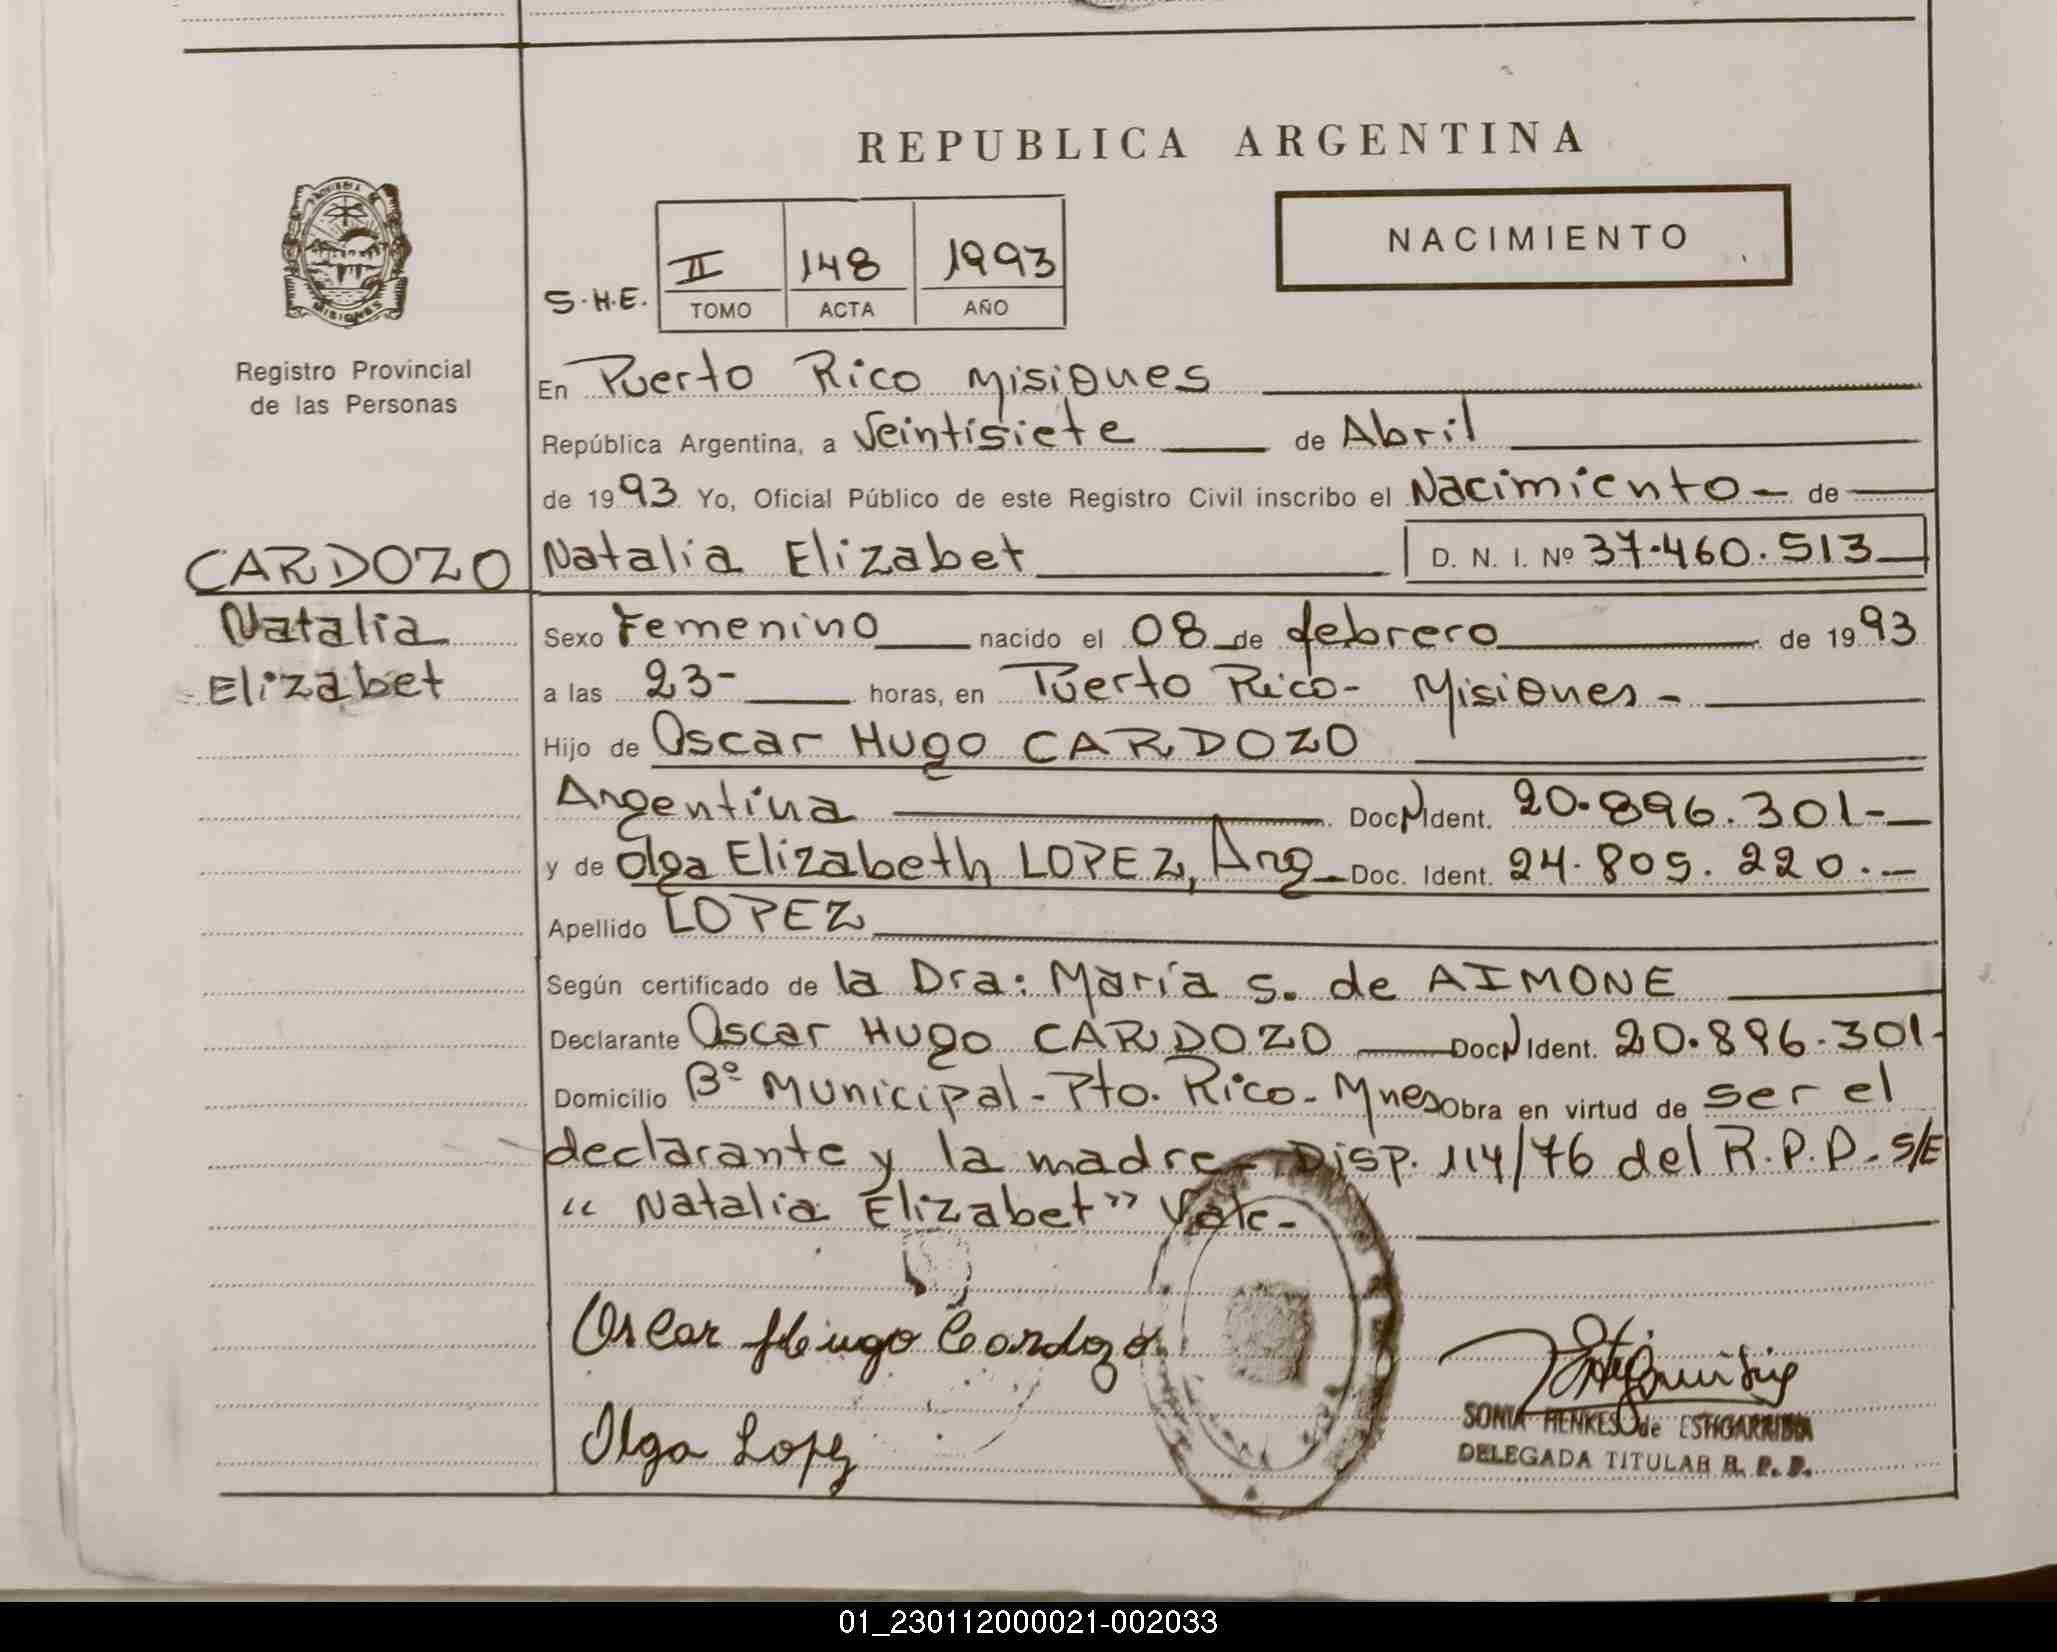 REPUBLICA ARGENTINA
NACIMIENTO
S.H.E.
II 148 1993
TOMO ACTA AÑO
MISIONES
Registro Provincial
de las Personas
En Puerto Rico Misiones
República Argentina, a Veintisiete de Abril
de 1993 Yo, Oficial Público de este Registro Civil inscribo el Nacimiento - de
CARDOZO Natalia Elizabet D. N. I. Nº 37.460.513
Natalia
Elizabet
Sexo Femenino nacido el 08 de febrero de 1993
a las 23- horas, en Puerto Rico- Misiones-
Hijo de Oscar Hugo CARDOZO
Argentina Doc N Ident. 20.896.301-
y de Olga Elizabeth LOPEZ, Arg Doc. Ident. 24.809.220.-
Apellido LOPEZ
Según certificado de la Dra: María S. de AIMONE
Declarante Oscar Hugo CARDOZO Doc N Ident. 20.896.301-
Domicilio Bº Municipal - Pto. Rico - Mnes Obra en virtud de ser el
declarante y la madre- Disp. 114/76 del R.P.P. S/E
"Natalia Elizabet" Vale-
Oscar Hugo Cardozo
Olga Lopez
SONIA HENKES de ESTIGARRIBIA
DELEGADA TITULAR R. P. P.
01_230112000021-002033